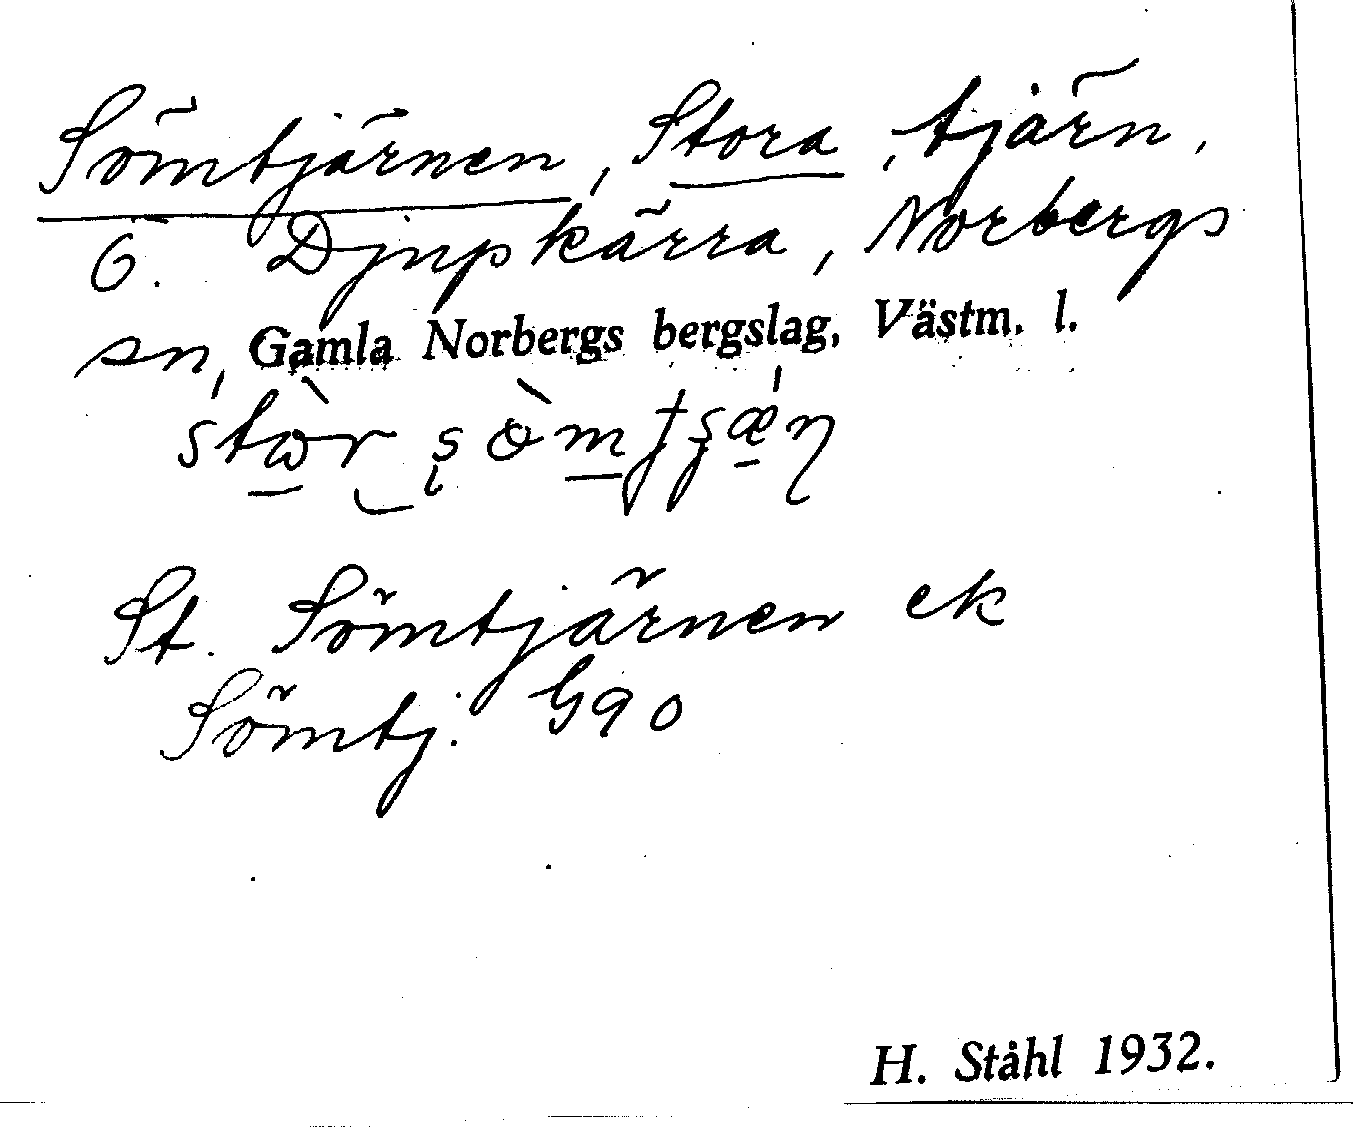 Sömtjärnen, Stora, tjärn,
Ö. Djupkärra, Norbergs
sn, Gamla Norbergs bergslag, Västm. l.
St. Sömtjärnen ek
Sömtj. G90
H. Ståhl 1932.